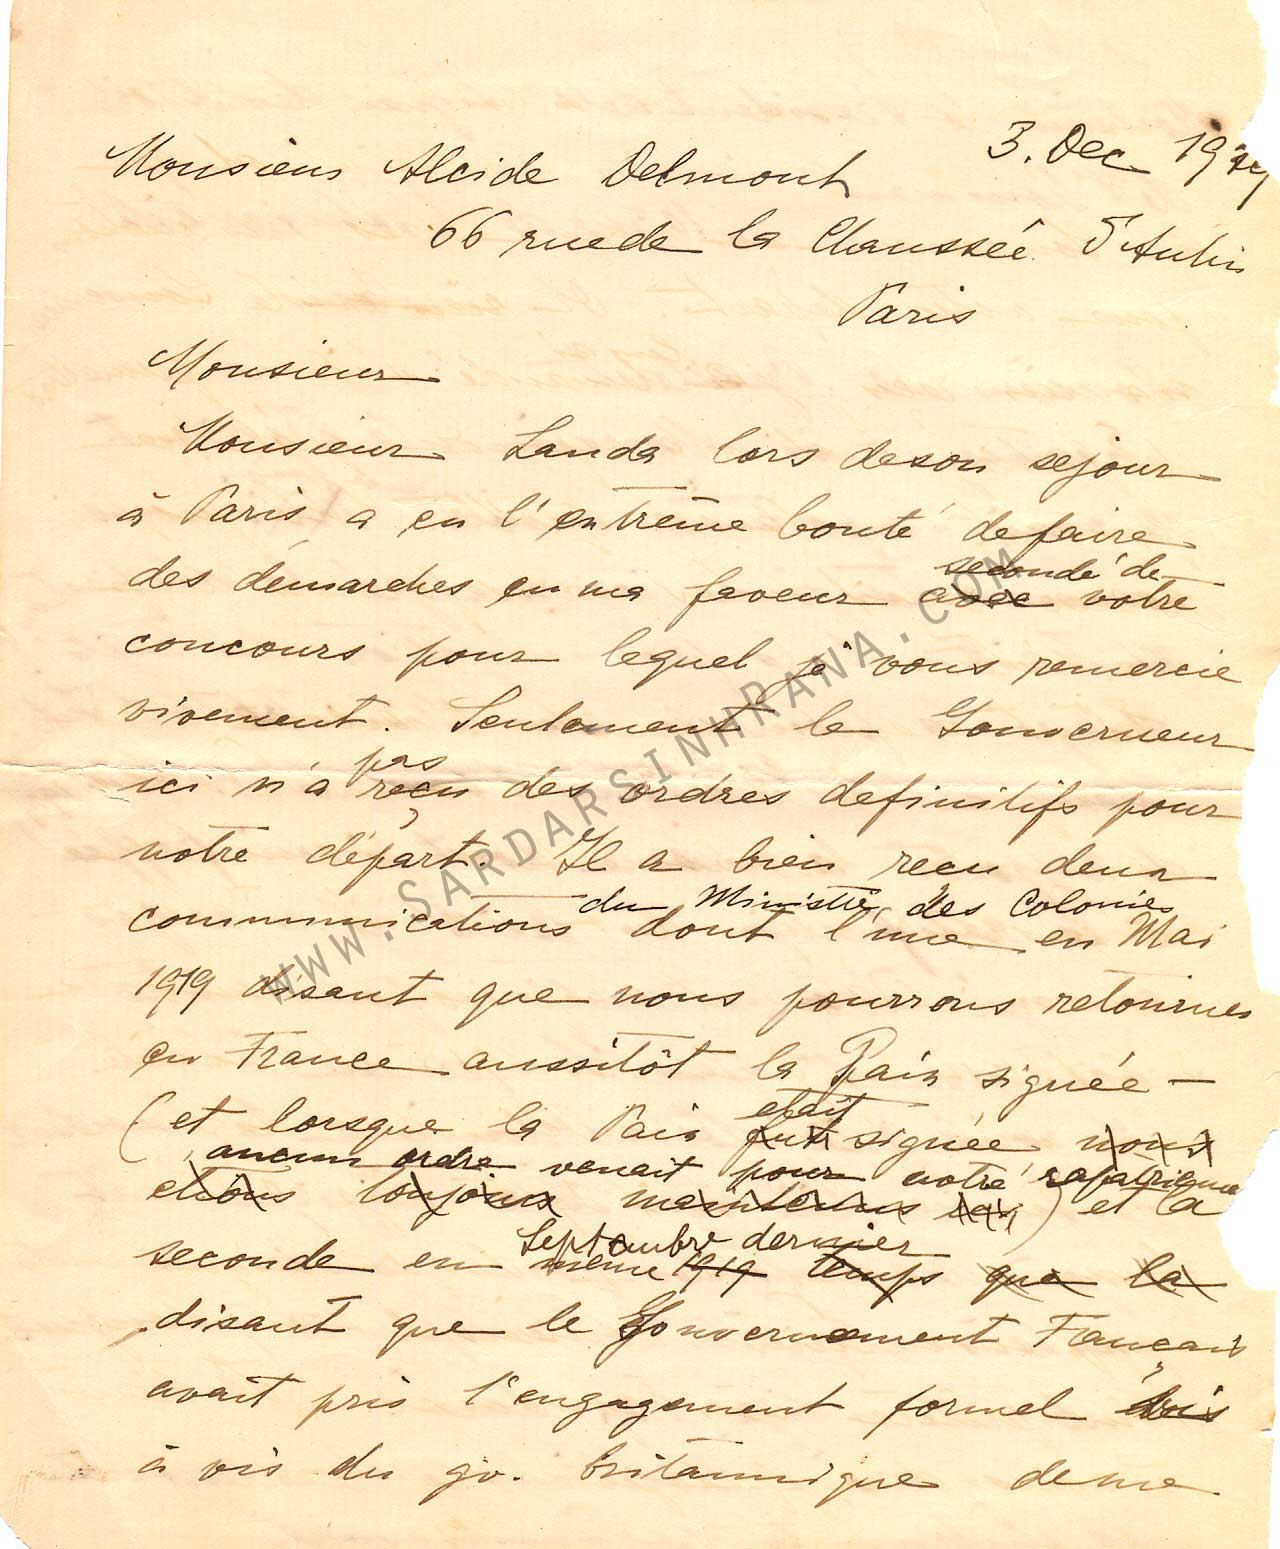 3. Dec 1919
Monsieur Alcide Delmont
66 rue de la Chausseé d'Antin
Paris
Monsieur
Monsieur Landa lors de son sejour
à Paris a eu l'entrême bonté de faire
des démarches en ma faveur avec secondé de votre
concours pour lequel je vous remercie
vivement. Seulement le Gouverneur
ici n'a pas reçu des ordres definitifs pour
notre départ. Il a bien reçu deux
communications du Ministre des Colonies dont l'une en Mai
1919 disant que nous pourrons retourner
en France aussitôt la Paix signée —
(et lorsque la Paix fut etait signée nous
aucun ordre venait pour notre rapatrieme
etions toujours maintenus ) et la
seconde en Septembre dernier même 1919 temps que la
disant que le Gouvernement Français
avait pris l'engagement formel vis
à vis du gv. britannique de me
WWW.SARDARSINHRANA.COM